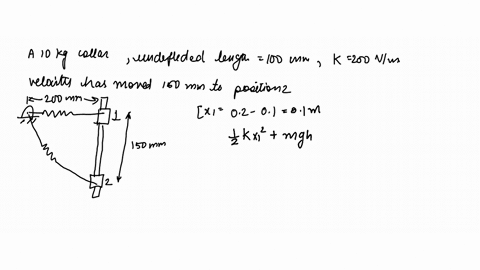 A 10 kg collar , undeflected length = 100 mm , K = 200 N/m
velocity has moved 150 mm to position 2
200 mm
1
[x1 = 0.2 - 0.1 = 0.1 m
150 mm
1/2 K x1² + mgh
2